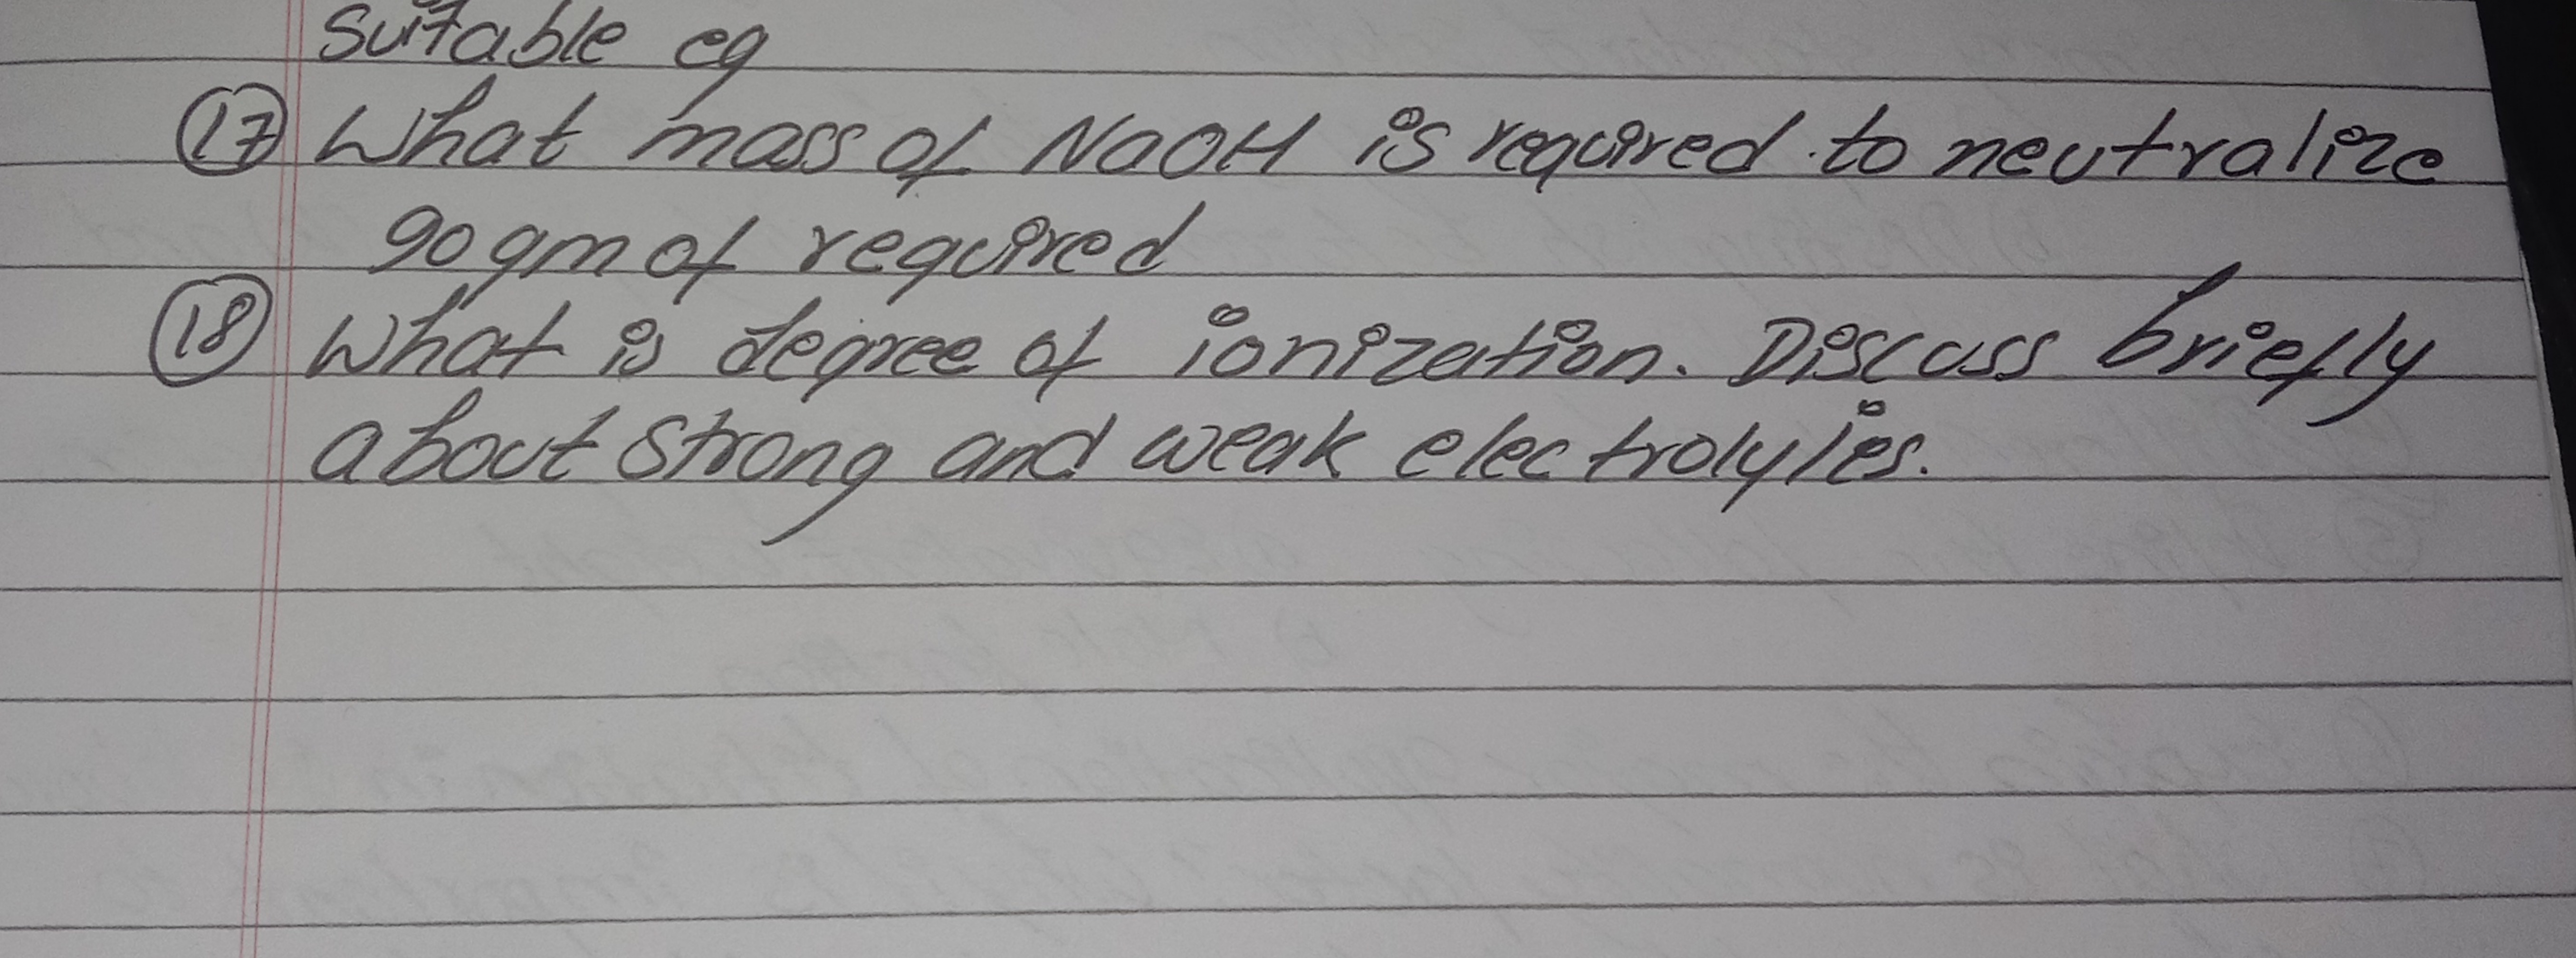 suitable eg
17 What mass of NaOH is required to neutralize
90 gm of required
18 What is degree of ionization. Discuss briefly
about strong and weak electrolyles.